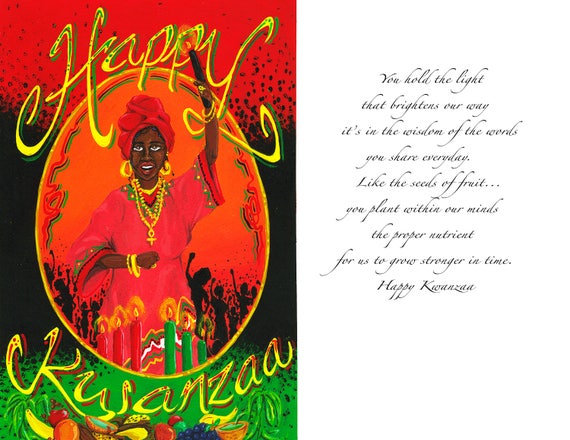 Happy
Kwanzaa
You hold the light
that brightens our way
it's in the wisdom of the words
you share everyday.
Like the seeds of fruit...
you plant within our minds
the proper nutrient
for us to grow stronger in time.
Happy Kwanzaa